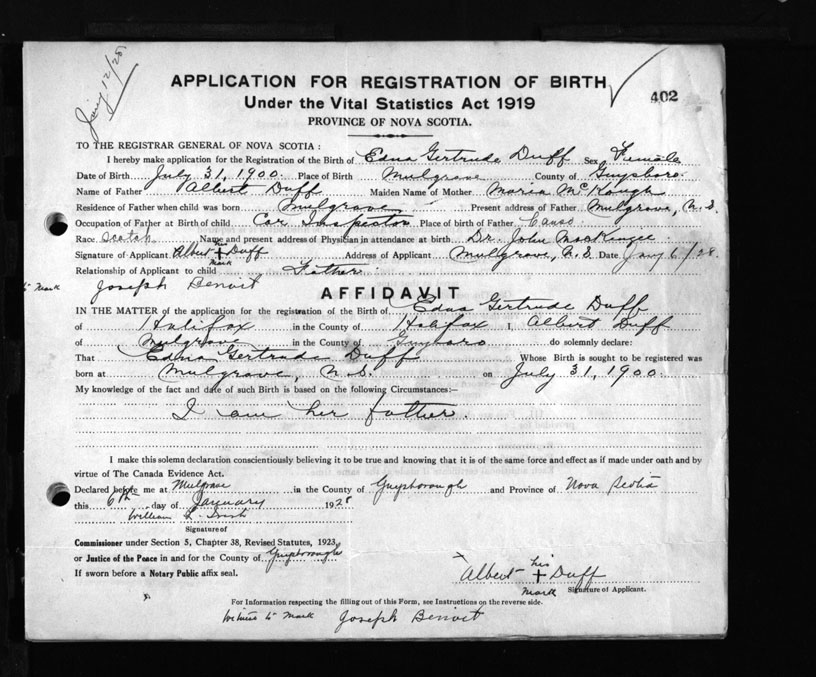 Jany 12/28
APPLICATION FOR REGISTRATION OF BIRTH
402
Under the Vital Statistics Act 1919
PROVINCE OF NOVA SCOTIA.
TO THE REGISTRAR GENERAL OF NOVA SCOTIA :
I hereby make application for the Registration of the Birth of Edna Gertrude Duff Sex Female
Date of Birth July 31, 1900. Place of Birth Mulgrave County of Guysboro.
Name of Father Albert Duff Maiden Name of Mother Maria McKough
Residence of Father when child was born Mulgrave Present address of Father Mulgrave, N.S.
Occupation of Father at Birth of child Car Inspector Place of birth of Father Canso.
Race Scotch Name and present address of Physician in attendance at birth Dr. John MacKenzie.
Signature of Applicant Albert his + mark Duff Address of Applicant Mulgrave, N.S. Date Jany 6/28.
Relationship of Applicant to child Father.
to Mark Joseph Benoit
AFFIDAVIT
IN THE MATTER of the application for the registration of the Birth of Edna Gertrude Duff
of Halifax in the County of Halifax I, Albert Duff
of Mulgrave in the County of Guysboro do solemnly declare:
That Edna Gertrude Duff Whose Birth is sought to be registered was
born at Mulgrave, N.S. on July 31, 1900.
My knowledge of the fact and date of such Birth is based on the following Circumstances:—
I am her father.
I make this solemn declaration conscientiously believing it to be true and knowing that it is of the same force and effect as if made under oath and by
virtue of The Canada Evidence Act.
Declared before me at Mulgrave in the County of Guysborough and Province of Nova Scotia
this 6th day of January 1928
William L.
Signature of
Commissioner under Section 5, Chapter 38, Revised Statutes, 1923,
or Justice of the Peace in and for the County of Guysborough
If sworn before a Notary Public affix seal.
Albert his + mark Duff
Signature of Applicant.
For Information respecting the filling out of this Form, see Instructions on the reverse side.
Witness to Mark Joseph Benoit